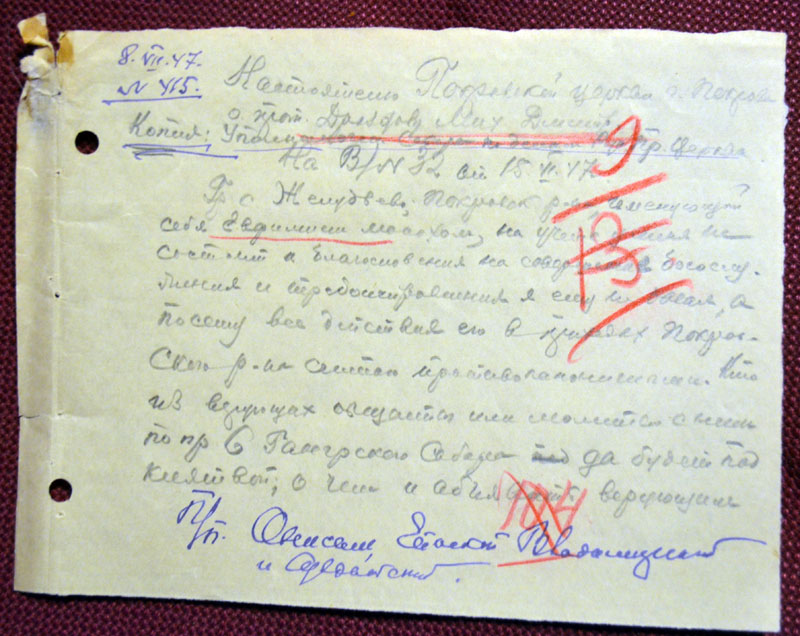 8.VII.47.
№ 415.
Настоятелю Покровской церкви г. Покрова
о. прот. Мих. Дмитр.
Копия: Уполн. по делам Пр. Церкви
На В/№ 32 от 15.VI.47.
Гр. с Желудьево, Покровск. р-на, именующий
себя Евфимием монахом, на учете у меня не
состоит и благословения на совершение богослу-
жения и требоисправления я ему не давал, а
посему все действия его в приходах Покров-
ского р-на считаю противозаконными. Кто
из верующих общается или молится с ним
по пр 6 Гангрского Собора да будет под
клятвой; о чем и объявить верующим
П/п. Онисим, Епископ Владимирский
и Суздальский.